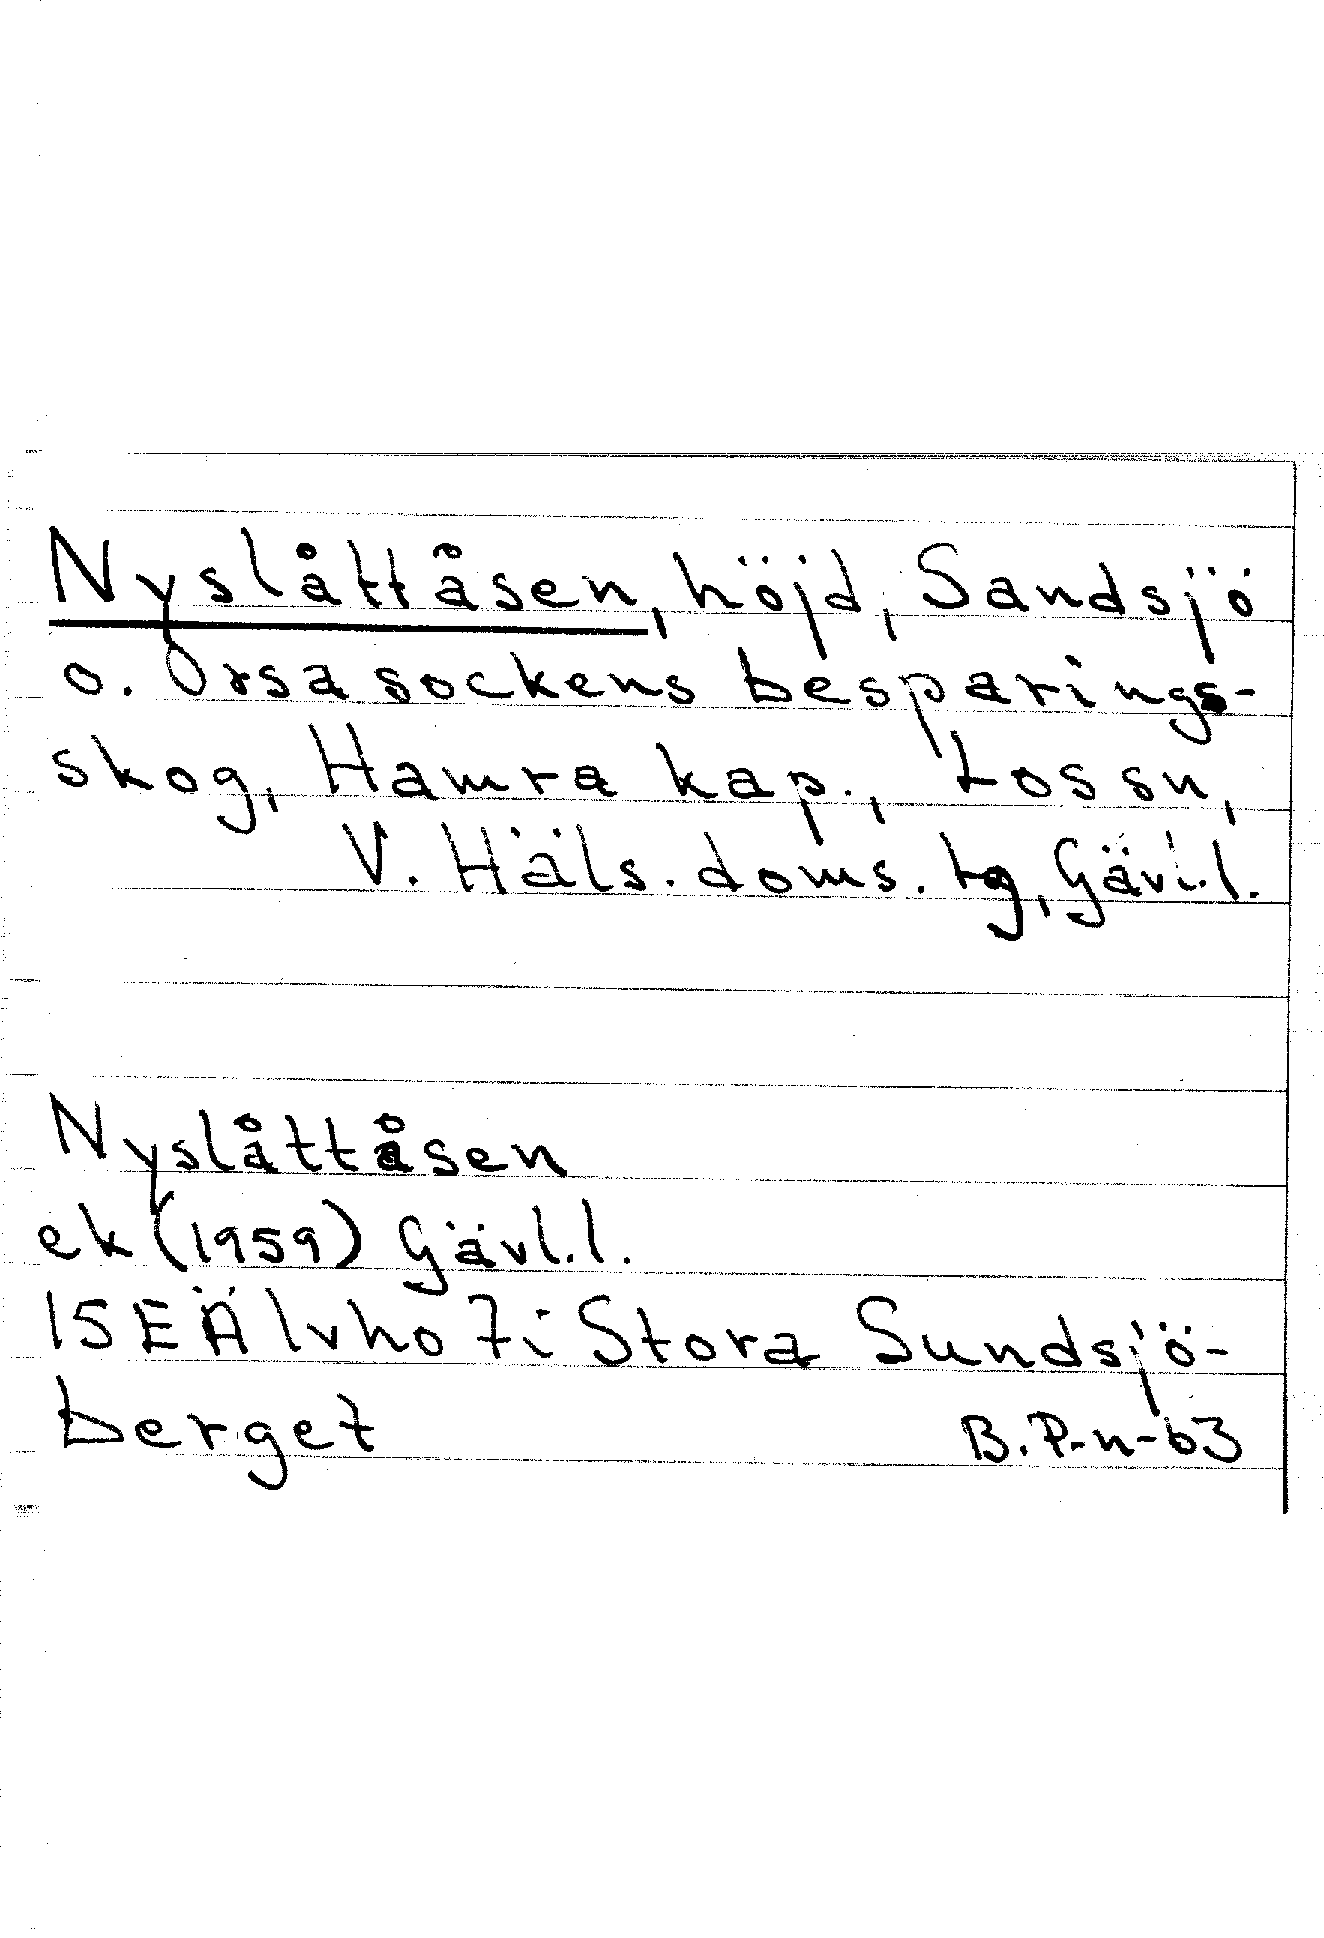 Nyslåttåsen, höjd, Sandsjö
o. Orsa sockens besparings-
skog, Hamra kap., Lossn,
V. Häls. doms. tg, Gävl.l.
Nyslåttåsen
ek (1959) Gävl.l.
15E Älvho 7i Stora Sundsjö-
berget B.P-n-63